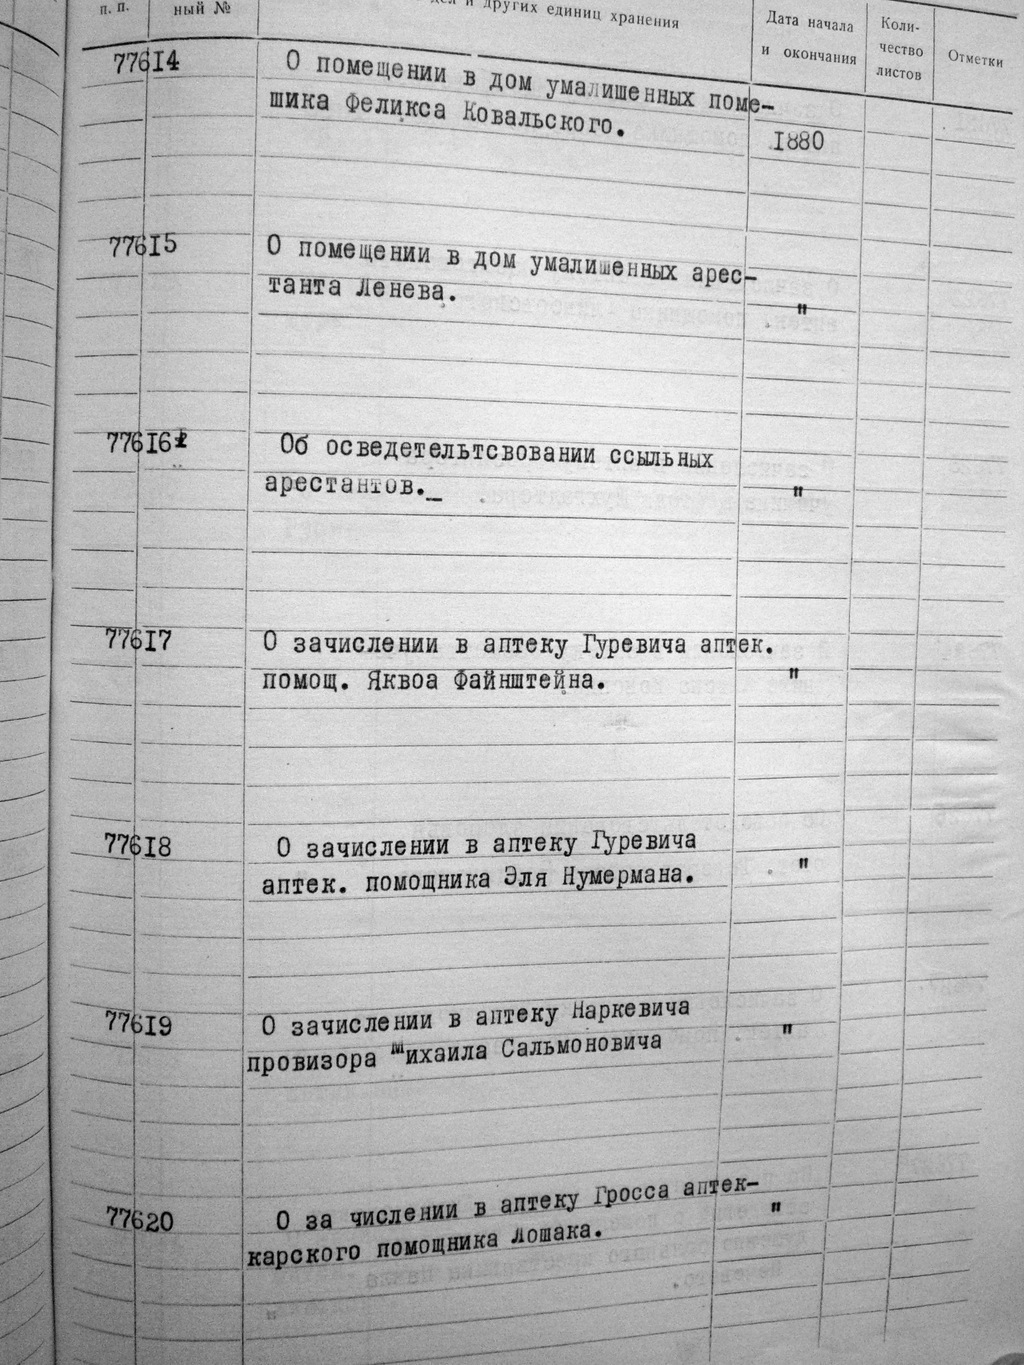 п. п. ный № и других единиц хранения Дата начала и окончания Коли-чество листов Отметки
77614 О помещении в дом умалишенных поме-
шика Феликса Ковальского. 1880
77615 О помещении в дом умалишенных арес-
танта Ленева. "
77616 Об осведетельтсвовании ссыльных
арестантов._ "
77617 О зачислении в аптеку Гуревича аптек.
помощ. Яквоа Файнштейна. "
77618 О зачислении в аптеку Гуревича
аптек. помощника Эля Нумермана. "
77619 О зачислении в аптеку Наркевича
провизора Михаила Сальмоновича "
77620 О за числении в аптеку Гросса аптек-
карского помощника Лошака. "